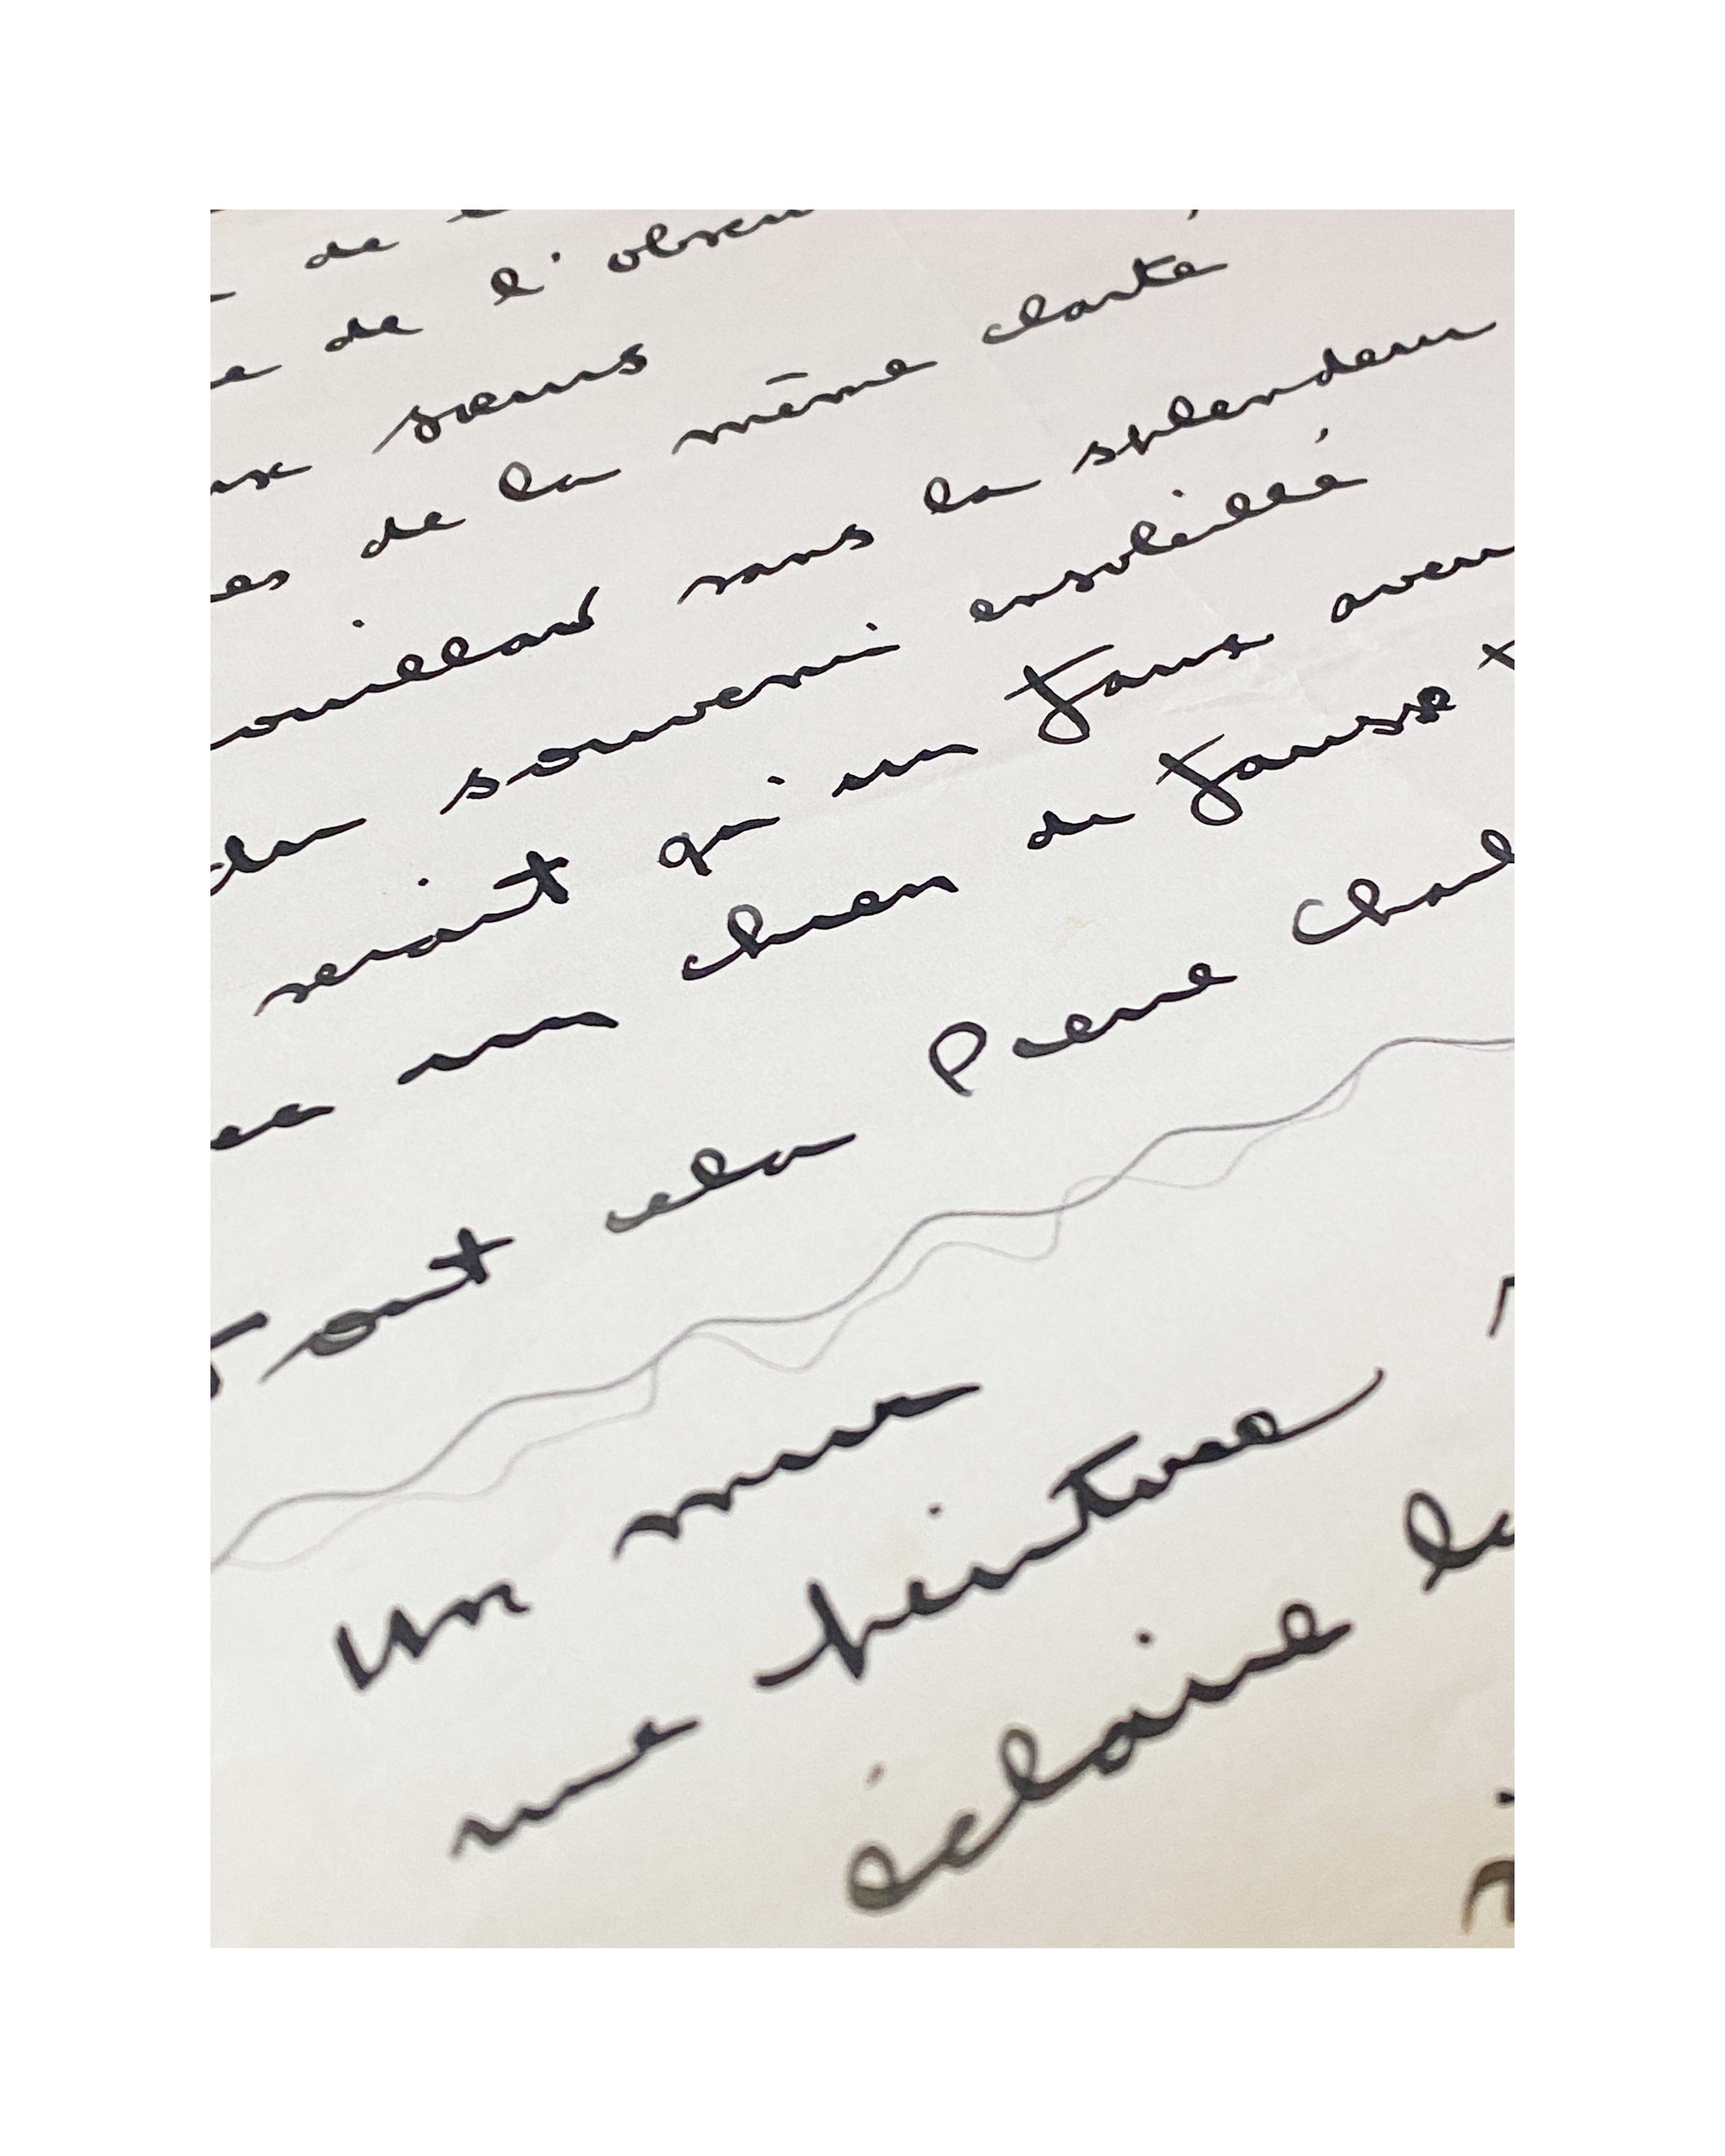 de
de l'obscu
sœurs
es de la même clarté
ouillard sans la splendeur
du souvenir ensoleillé
serait qu'un faux aveu
un chien de fausse
Tout cela Pierre Cha
Un mur
une peinture
éclaire